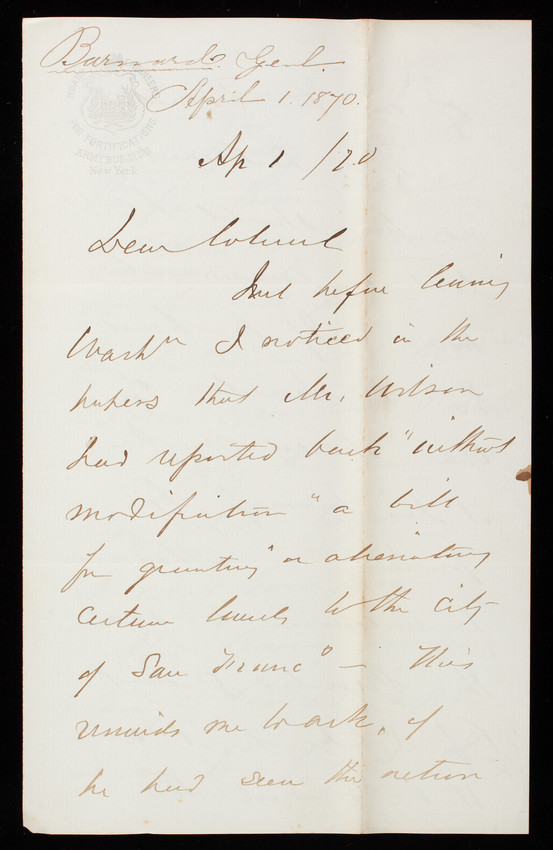 Barnard. Genl.
April 1. 1870.
FOR FORTIFICATIONS
ARMY BUILDING
New York
Ap 1 /70
Dear Colonel
Just before leaving
Washn I noticed in the
papers that Mr. Wilson
had reported back "without
modification" a bill
for "granting" or alienating
certain lands to the city
of San Franco — This
reminds me to ask, if
he had seen the action